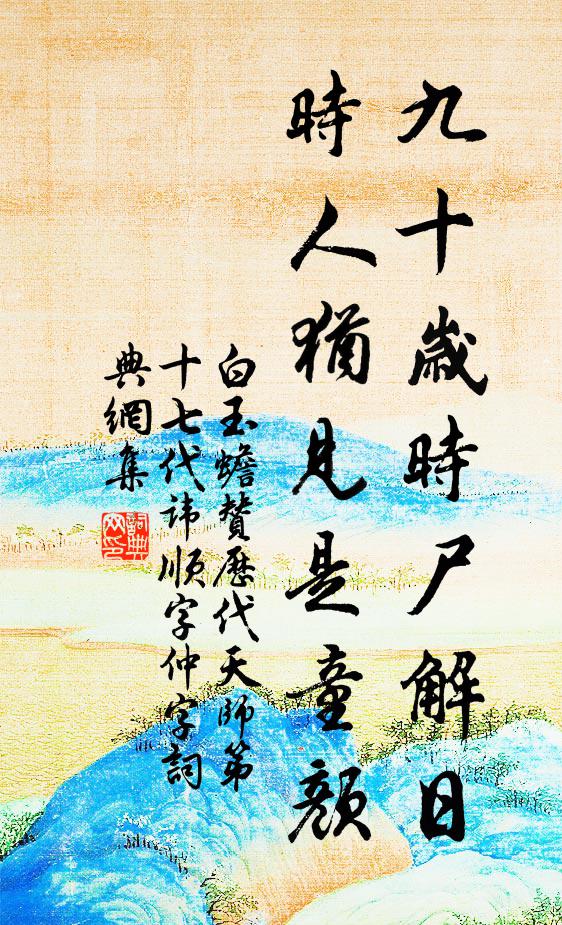 九十歲時尸解日
時人猶見是童顏
白玉蟾贊歷代天師第
十七代諱順字仲字詞
典網集
詞典網印